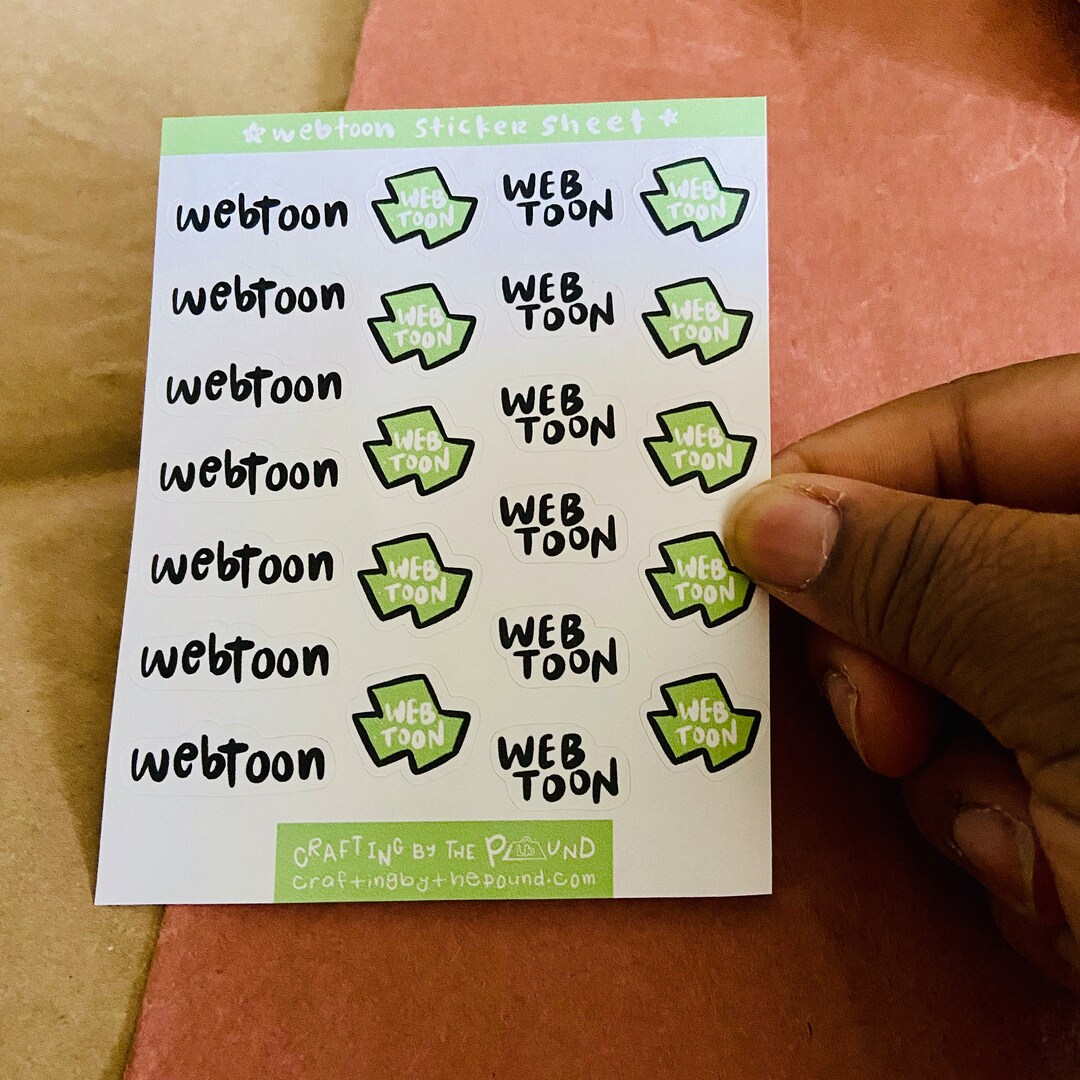 webtoon sticker sheet
webtoon
WEB
TOON
WEB
TOON
WEB
TOON
webtoon
WEB
TOON
WEB
TOON
WEB
TOON
webtoon
WEB
TOON
WEB
TOON
WEB
TOON
webtoon
WEB
TOON
WEB
TOON
WEB
TOON
webtoon
WEB
TOON
WEB
TOON
WEB
TOON
webtoon
WEB
TOON
webtoon
WEB
TOON
CRAFTING BY THE POUND
craftingbythepound.com